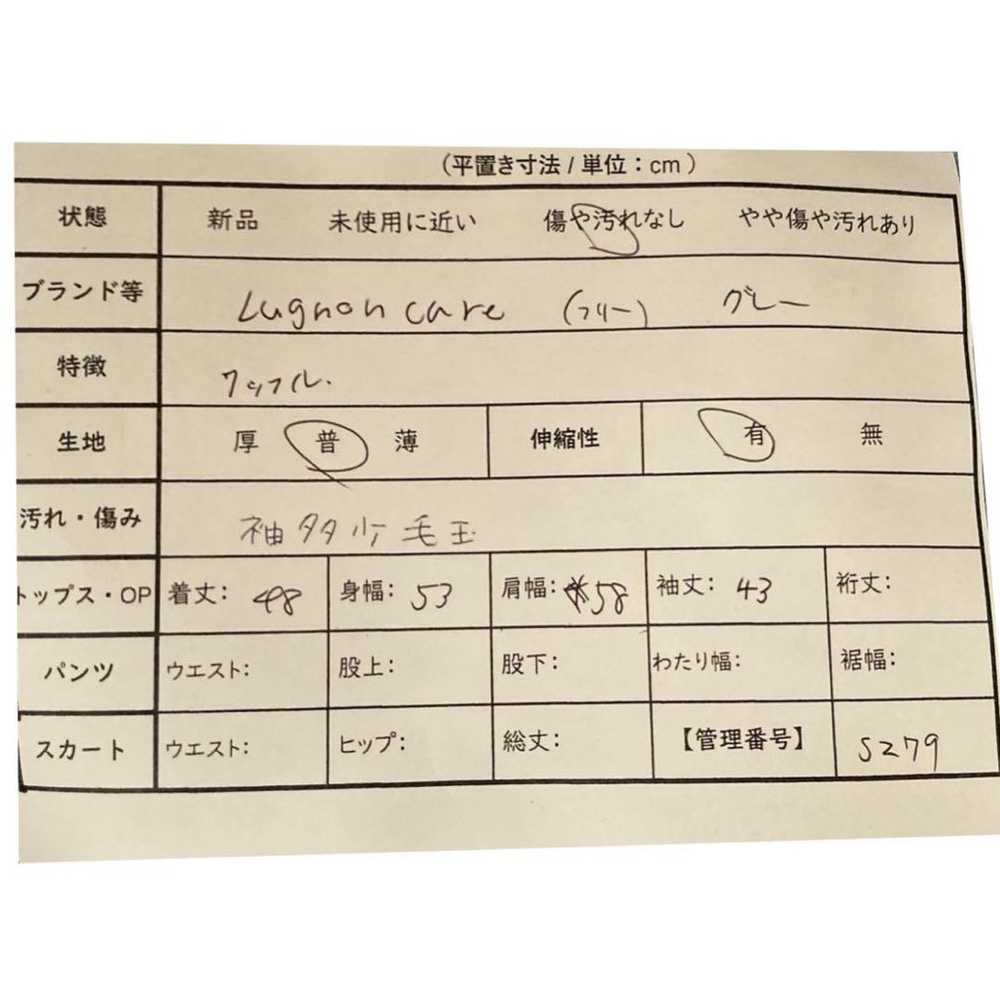 (平置き寸法 / 単位：cm )
状態 新品 未使用に近い 傷や汚れなし やや傷や汚れあり
ブランド等 Lugnoncare (フリー) グレー
特徴 ワッフル.
生地 厚 普 薄 伸縮性 有 無
汚れ・傷み 袖多少毛玉
トップス・OP 着丈： 48 身幅： 53 肩幅： 58 袖丈： 43 裄丈：
パンツ ウエスト： 股上： 股下： わたり幅： 裾幅：
スカート ウエスト： ヒップ： 総丈： 【管理番号】 S279